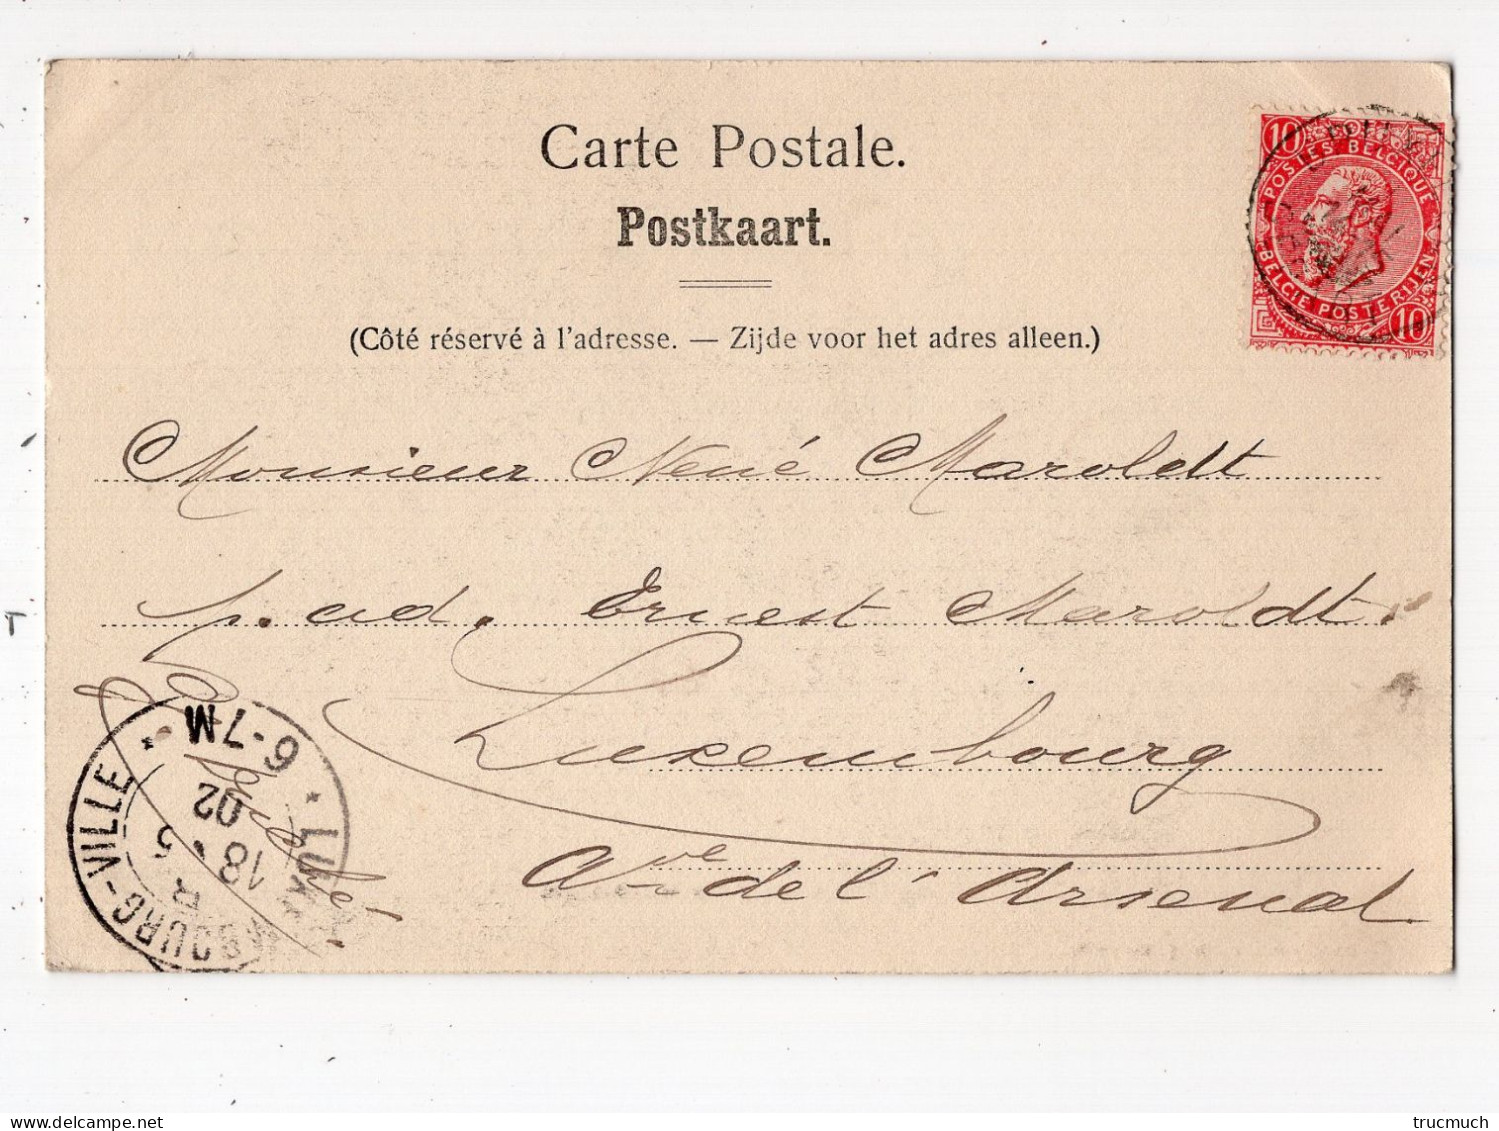 Carte Postale.
Postkaart.
(Côté réservé à l'adresse. — Zijde voor het adres alleen.)
10
POSTES BELGIQUE
BELGIE POSTERIJEN
10
Monsieur René Maroldt
p. ad. Ernest Maroldt.
Luxembourg
Ave de l'Arsenal
6-7M
18 5
02
BOURG-VILLE
delcampe.net
trucmuch